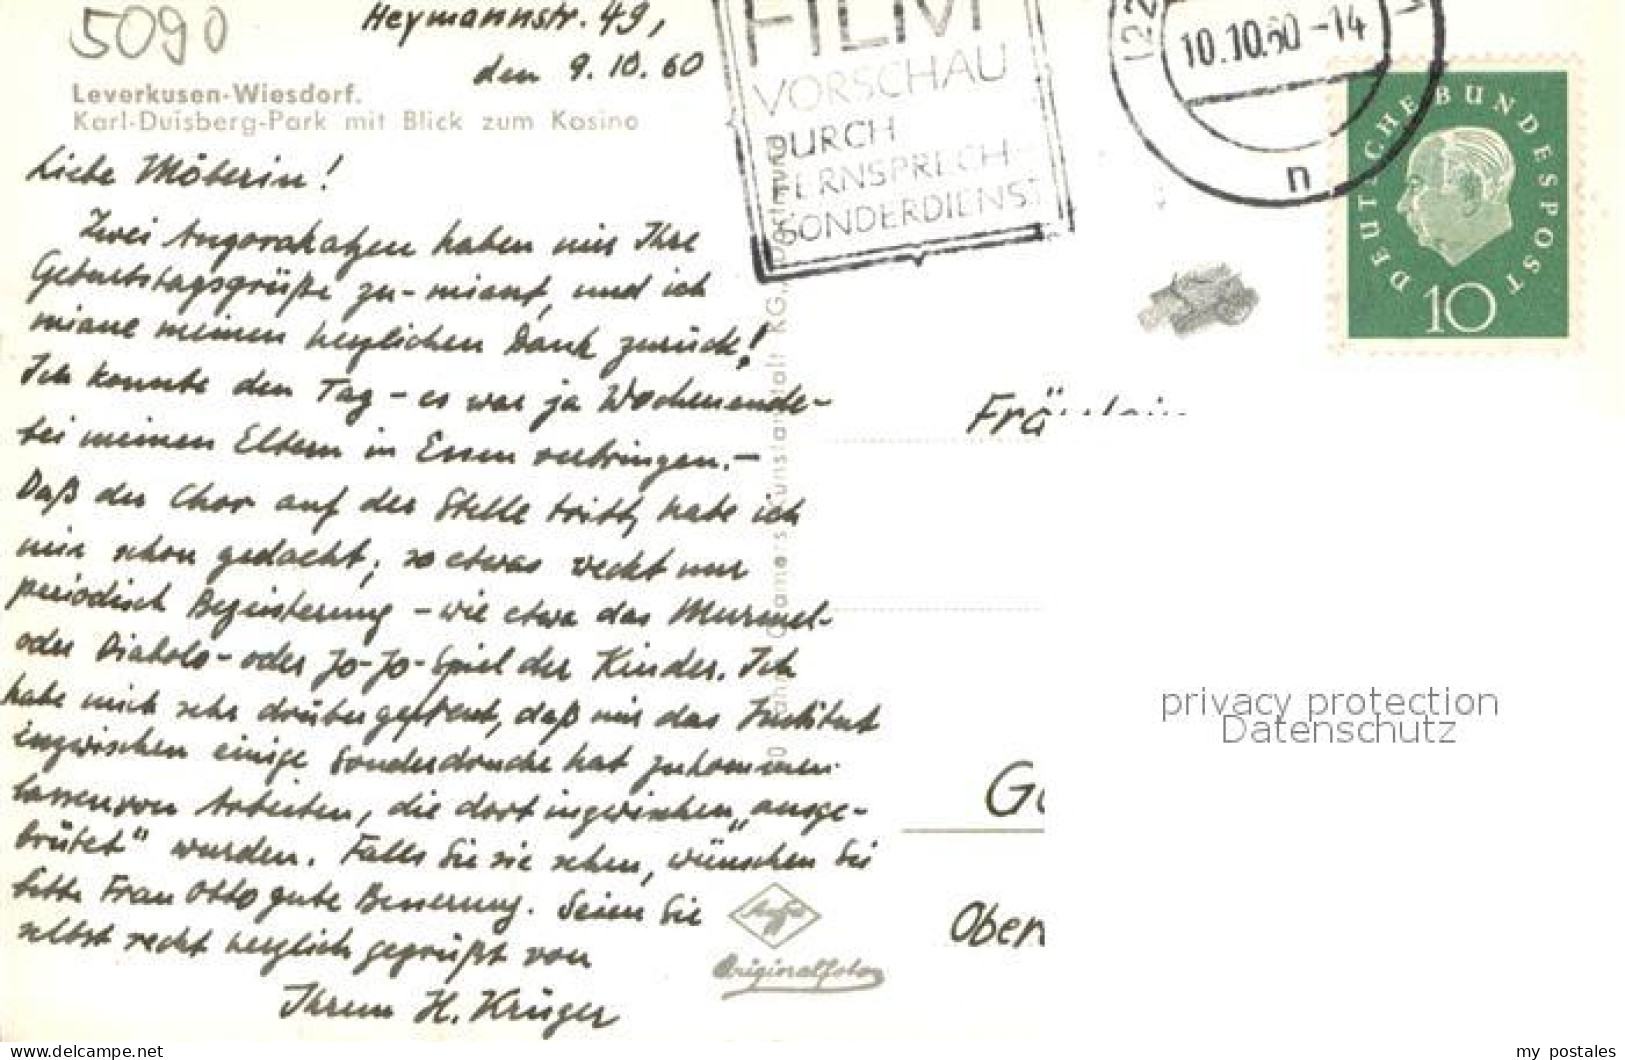 5090
Heymannstr. 49,
den 9.10.60
Leverkusen-Wiesdorf.
Karl-Duisberg-Park mit Blick zum Kasino
Liebe Möberin!
Zwei Angorakatzen haben mir Ihre
Geburtstagsgrüße zu-miaut, und ich
miaue meinen herzlichen Dank zurück!
Ich konnte den Tag - es war ja Wochenende-
bei meinen Eltern in Essen verbringen.-
Daß der Chor auf der Stelle tritt, habe ich
mir schon gedacht; so etwas weckt nur
periodisch Begeisterung - wie etwa das Murmel-
oder Diabolo- oder Jo-Jo-Spiel der Kinder. Ich
habe mich sehr darüber gefreut, daß mir das Institut
inzwischen einige Sonderdrucke hat zukommen
lassen von Arbeiten, die dort inzwischen „ausge-
brütet" wurden. Falls Sie sie sehen, wünschen Sie
bitte Frau Otto gute Besserung. Seien Sie
selbst recht herzlich gegrüßt von
Ihrem H. Krüger
FILM
VORSCHAU
DURCH
FERNSPRECH-
SONDERDIENST
10.10.60-14
n
DEUTSCHE BUNDESPOST
10
Fräulein
G
Ober
Cramers Kunstanstalt KG, Dortmund
Agfa
Originalfoto
privacy protection
Datenschutz
my postales
www.delcampe.net